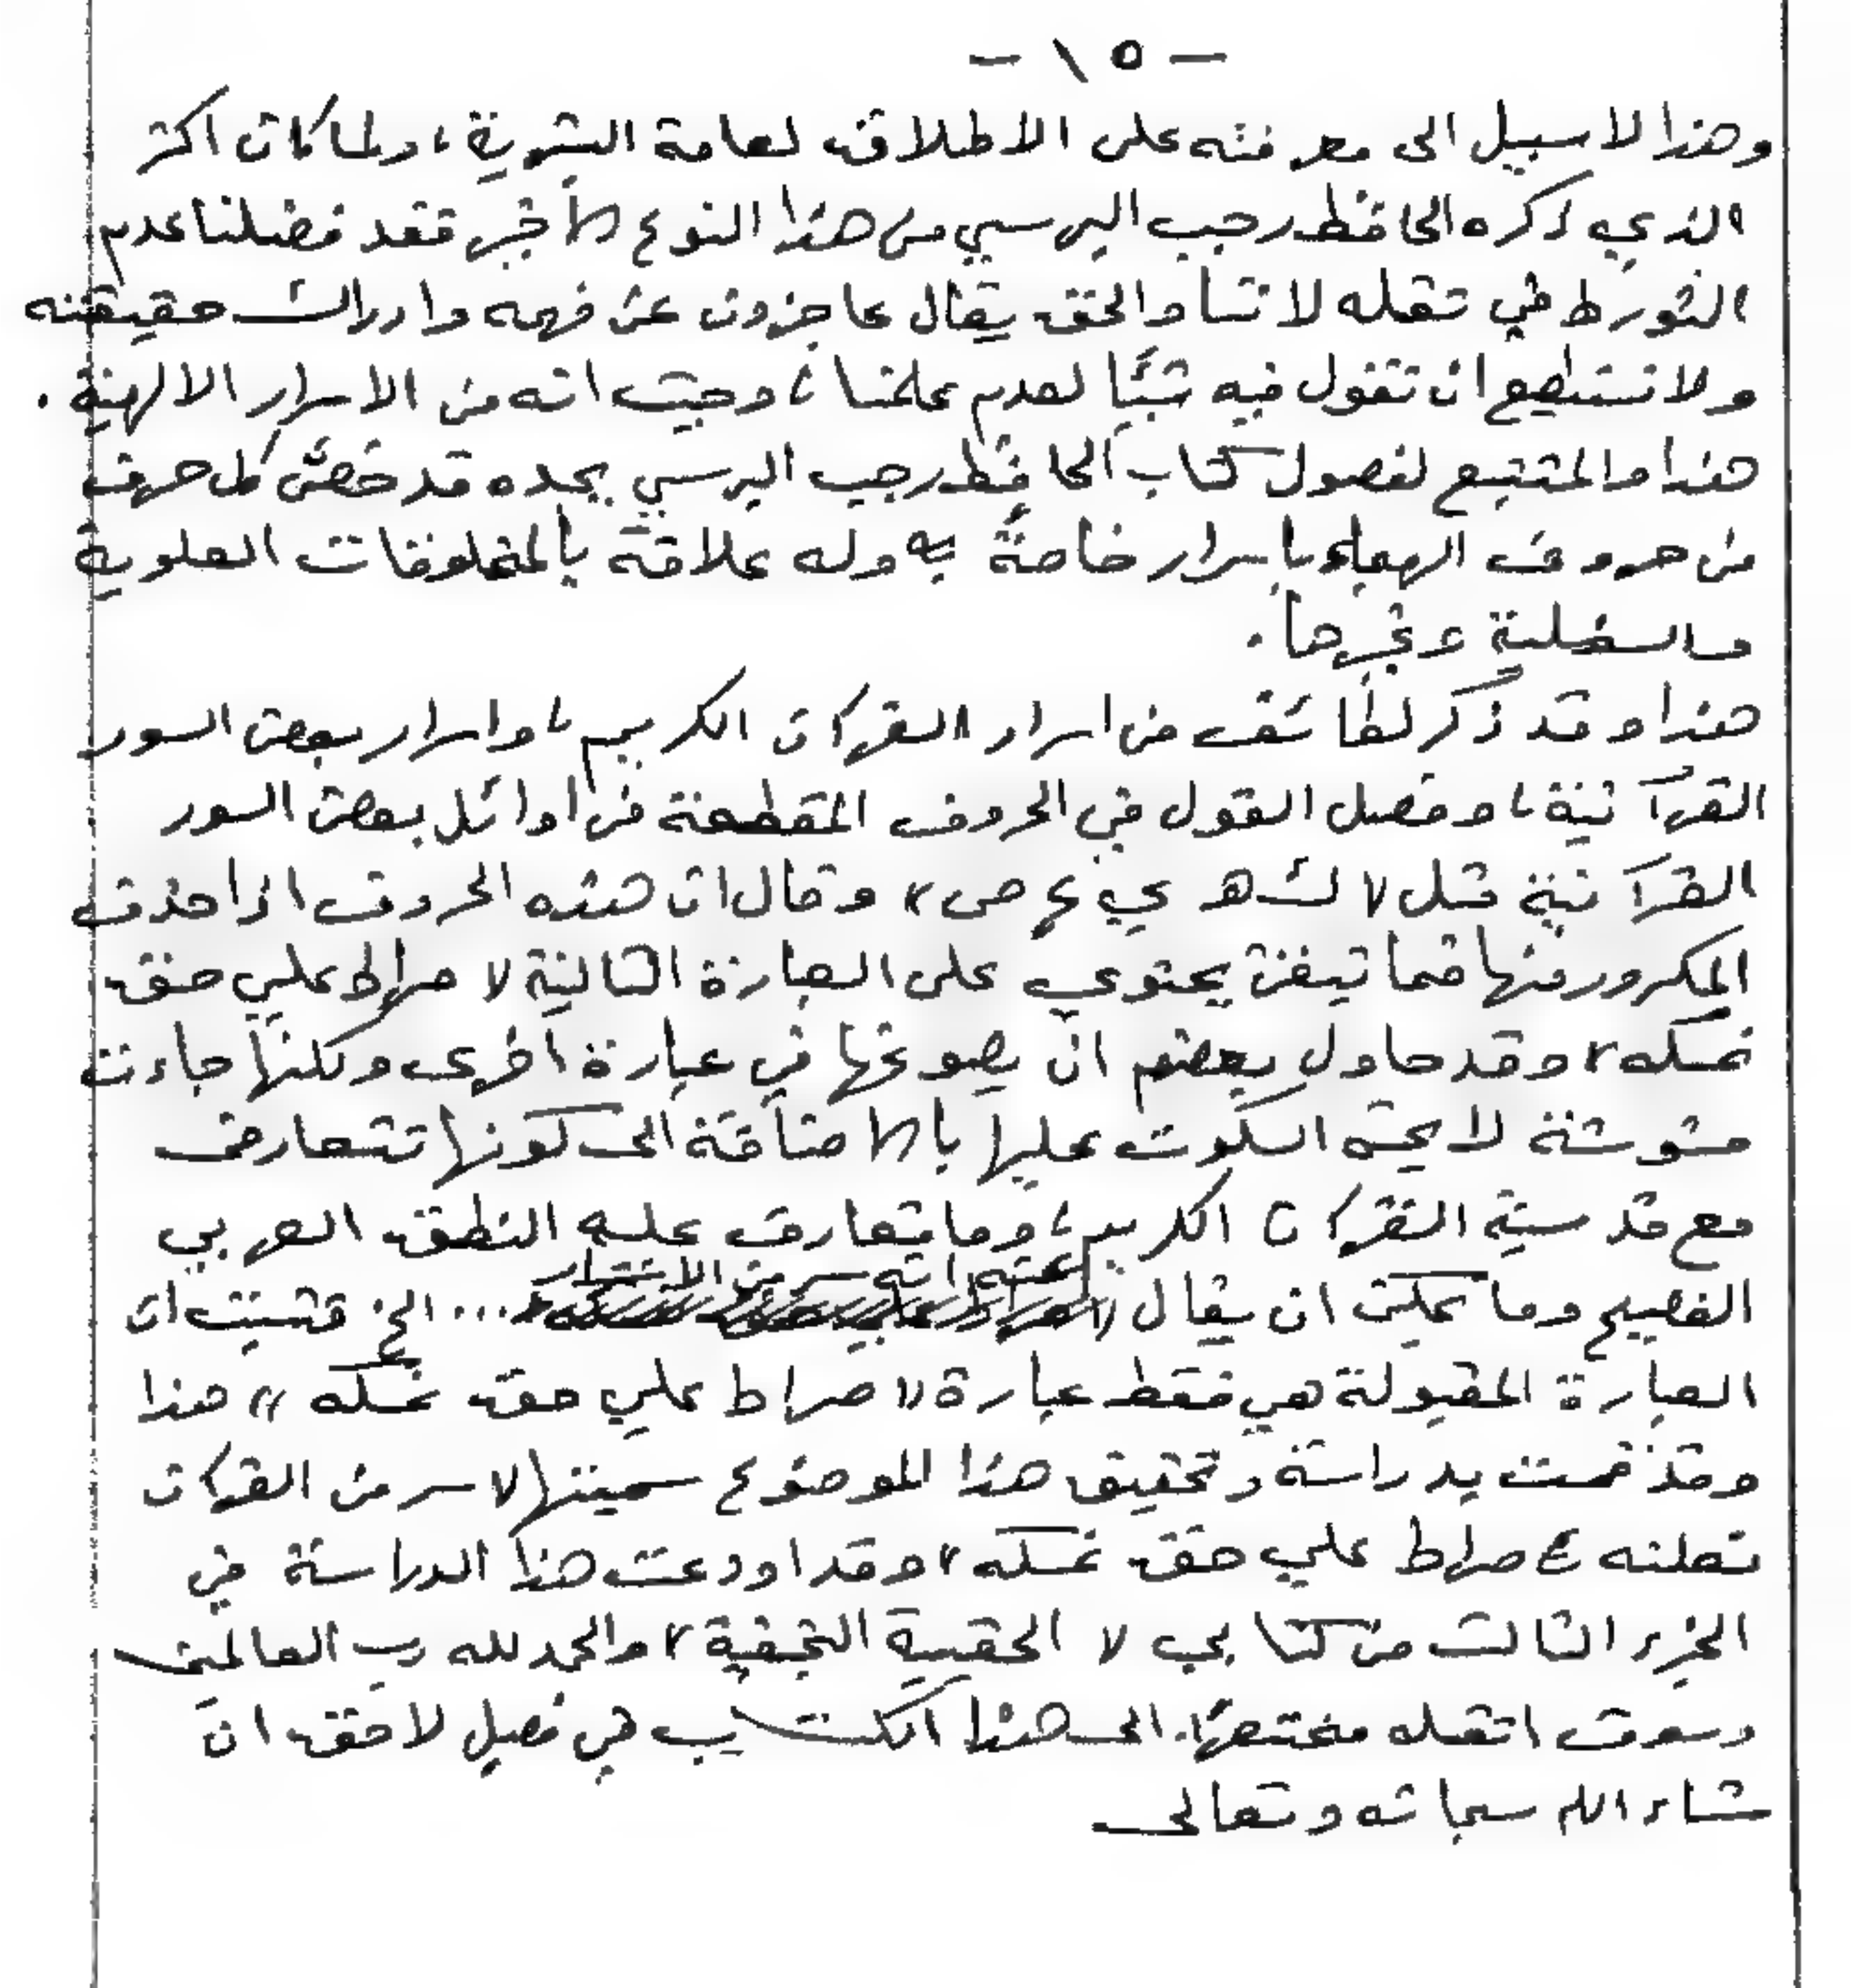 - ١٥ -
وهذا لا سبيل الى معرفته على الاطلاق لعامة البشرية، ولما كان اكثر
الذي ذكره الحافظ رجب البرسي من هذا النوع الأخير فقد فضلنا عدم
التورط في نقله لاننا والحق يقال عاجزون عن فهمه وادراك حقيقته
ولا نستطيع ان نقول فيه شيئًا لعدم علمنا، وحيث انه من الاسرار الالهية.
هذا والمتتبع لفصول كتاب الحافظ رجب البرسي يجده قد خصّ كل حرف
من حروف الهجاء بأسرار خاصة به وله علاقة بالمخلوقات العلوية
والسفلية وغيرها.
هذا وقد ذكر لطائف من اسرار القرآن الكريم، واسرار بعض السور
القرآنية، وفصل القول في الحروف المقطعة من اوائل بعض السور
القرآنية مثل « ك هـ ي ع ص » وقال ان هذه الحروف اذا حذف
المكرور منها فما تبقى يحتوي على العبارة التالية « صراط علي حق
نمسكه » وقد حاول بعضهم ان يصوغها في عبارة اخرى ولكنها جاءت
مشوشة لا يحسن السكوت عليها بالأضافة الى كونها تتعارض
مع قدسية القرآن الكريم، وما يتعارف عليه النطق العربي
الفصيح وما يمكن ان يقال عنه انه سر من الاسرار ... الخ فثبت ان
العبارة المقبولة هي فقط عبارة « صراط علي حق نمسكه » هذا
وقد قمت بدراسة وتحقيق هذا الموضوع سميتها « سر من القرآن
تعلنه ع صراط علي حق نمسكه » وقد اودعت هذا الدراسة في
الجزء الثالث من كتابي « الحقيبة النجفية » والحمد لله رب العالمين
وسوف انقله مختصرًا الى هذا الكتاب في فصل لاحق ان
شاء الله سبحانه وتعالى